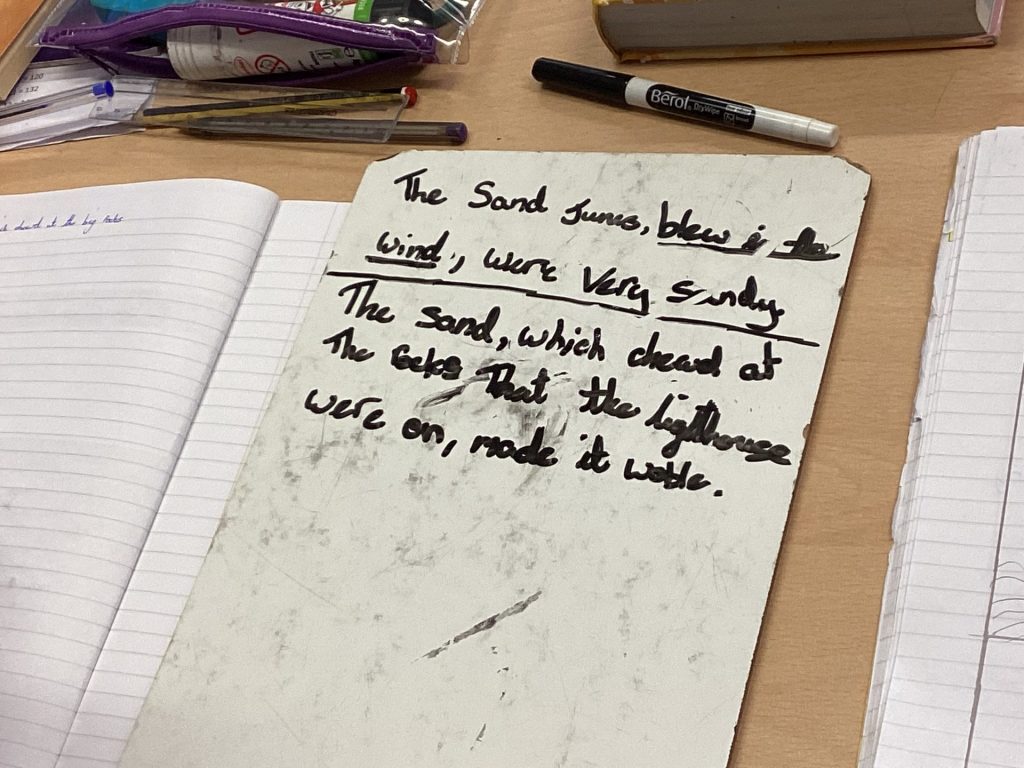 120
= 132
Berol DryWipe
at the big rocks
The Sand Junes, blew i the
wind, were very sandy.
The sand, which chewd at
The rocks That the ligthouse
were on, made it woble.